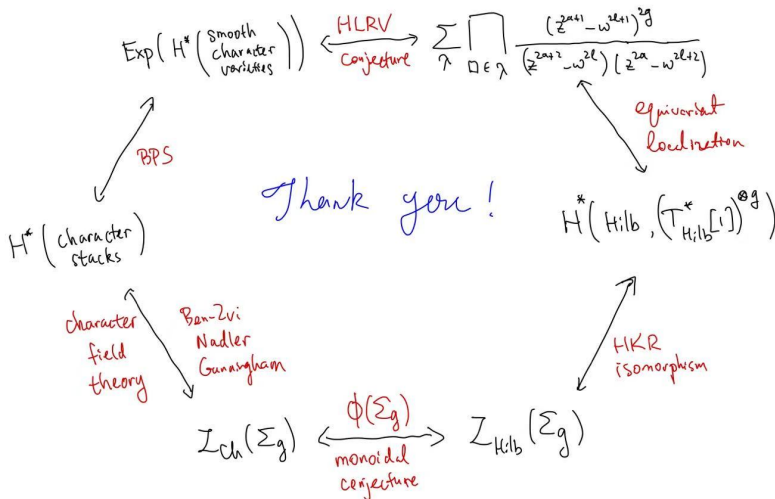 Exp(H*(smooth character varieties))
HLRV
conjecture
∑_λ ∏_{□∈λ} (z^{2a+1} - w^{2l+1})^{2g} / (z^{2a+2} - w^{2l})(z^{2a} - w^{2l+2})
BPS
equivariant
localization
Thank you!
H*(character stacks)
H*(Hilb, (T*_{Hilb}[1])^{⊗g})
character
field
theory
Ben-Zvi
Nadler
Gunningham
HKR
isomorphism
Z_{Ch}(Σ_g)
ϕ(Σ_g)
monoidal
conjecture
Z_{Hilb}(Σ_g)